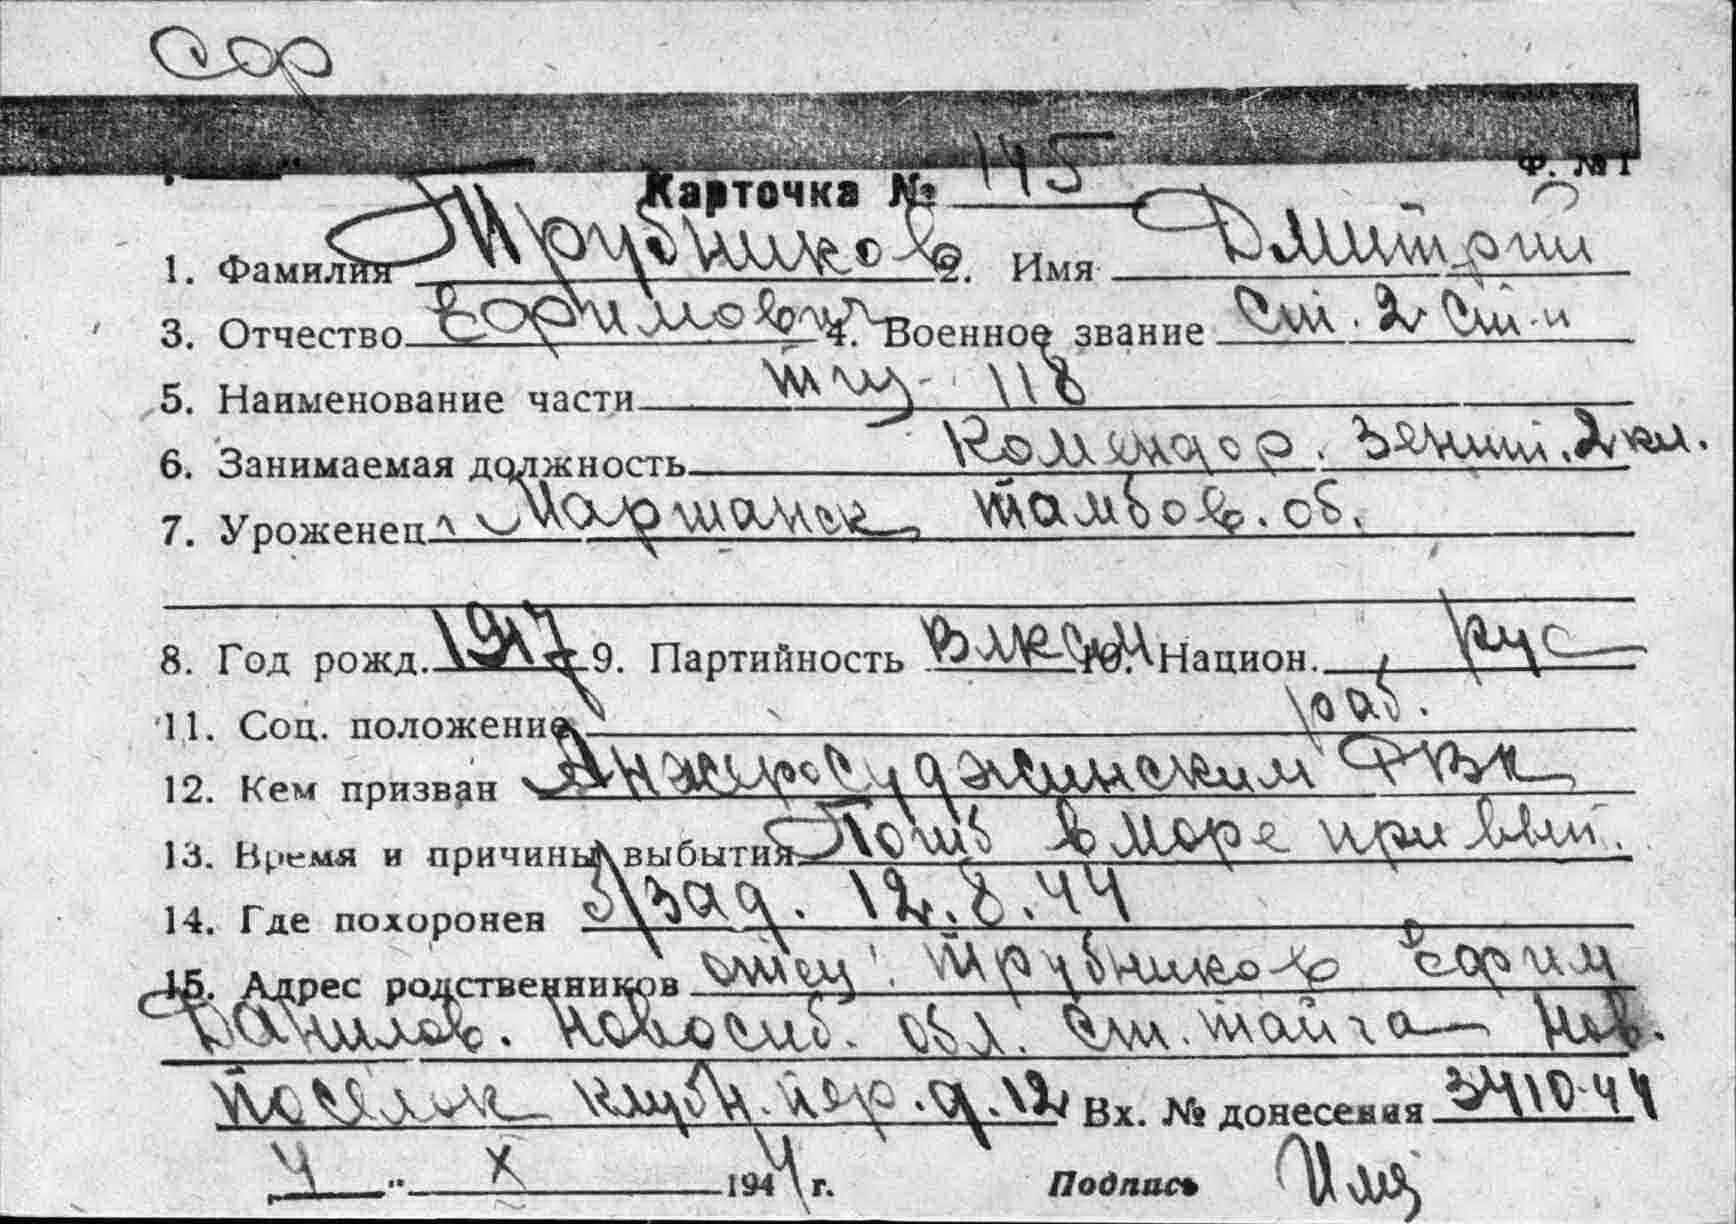 сф
Ф. № 1
Карточка № 145
1. Фамилия Трубников 2. Имя Дмитрий
3. Отчество Ефимович 4. Военное звание ст. 2 ст-и
5. Наименование части тщ-118
6. Занимаемая должность Комендор. зенит. 2 кл.
7. Уроженец г Маршанск тамбов. об.
8. Год рожд. 1917 9. Партийность ВЛКСМ 10. Национ. рус
11. Соц. положение раб.
12. Кем призван Анжеросуджинским РВК
13. Время и причины выбытия Погиб в море при вып.
14. Где похоронен б/зад. 12.8.44
15. Адрес родственников отец: Трубников Ефим
Данилов. Новосиб. обл. ст. тайга Нов.
поселок клубн. пер. д. 12 Вх. № донесения 3410-44
4 " X 1944 г. Подпись